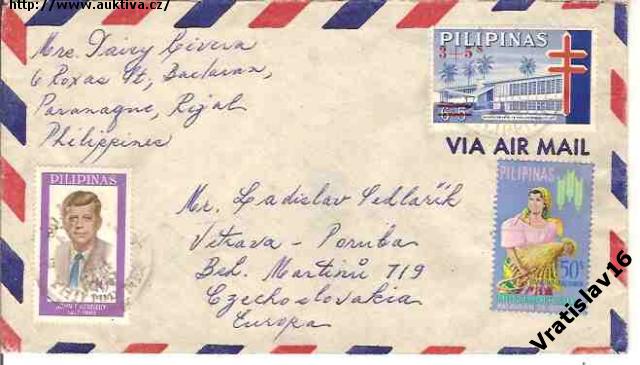 http://www.auktiva.cz/
Mrs. Daisy Civera
6 Roxas St, Baclaran,
Paranaque, Rizal
Philippines
PILIPINAS
3+5s
6+5
VIA AIR MAIL
PILIPINAS
JOHN F. KENNEDY
1917-1963
Mr. Ladislav Sedlařík
Ostrava - Poruba
Boh. Martinů 719
Czechoslovakia
Europa
PILIPINAS
50s
Vratislav16